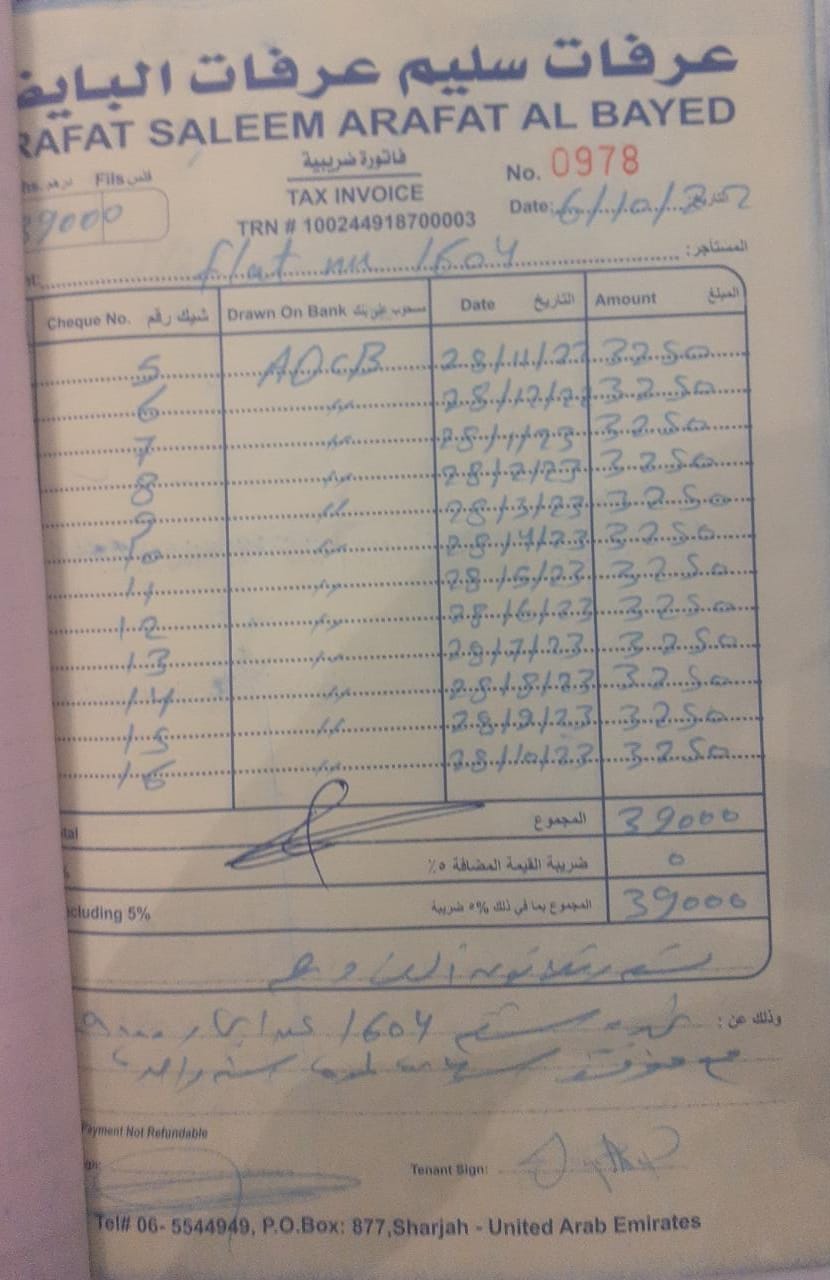 عرفات سليم عرفات البايض
RAFAT SALEEM ARAFAT AL BAYED
فاتورة ضريبية
TAX INVOICE
TRN # 100244918700003
No. 0978
Date: 6/10/2022 التاريخ
hs. درهم Fils فلس
39000
flat no 1604 المستأجر:
Cheque No. شيك رقم Drawn On Bank مسحوب على بنك Date التاريخ Amount المبلغ
5 ADCB 28/11/22 3250
6 " 28/12/22 3250
7 " 28/1/23 3250
8 " 28/2/23 3250
9 " 28/3/23 3250
10 " 28/4/23 3250
11 " 28/5/23 3250
12 " 28/6/23 3250
13 " 28/7/23 3250
14 " 28/8/23 3250
15 " 28/9/23 3250
16 " 28/10/23 3250
tal المجموع 39000
ضريبة القيمة المضافة ٥٪ 0
cluding 5% المجموع بما في ذلك ٥% ضريبة 39000
وذلك عن: 1604
Payment Not Refundable
Tenant Sign:
Tel# 06- 5544949, P.O.Box: 877,Sharjah - United Arab Emirates